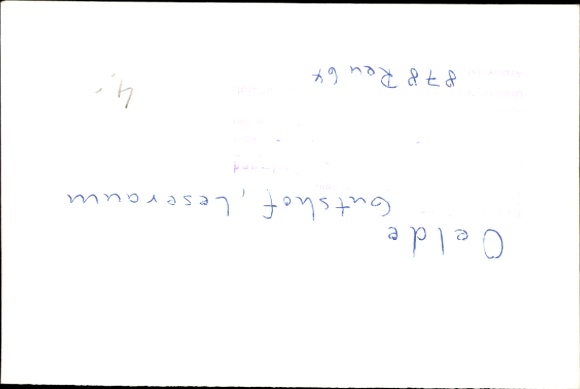 Oelde
Gutshof, Leseraum
4,-
878 Reu 64